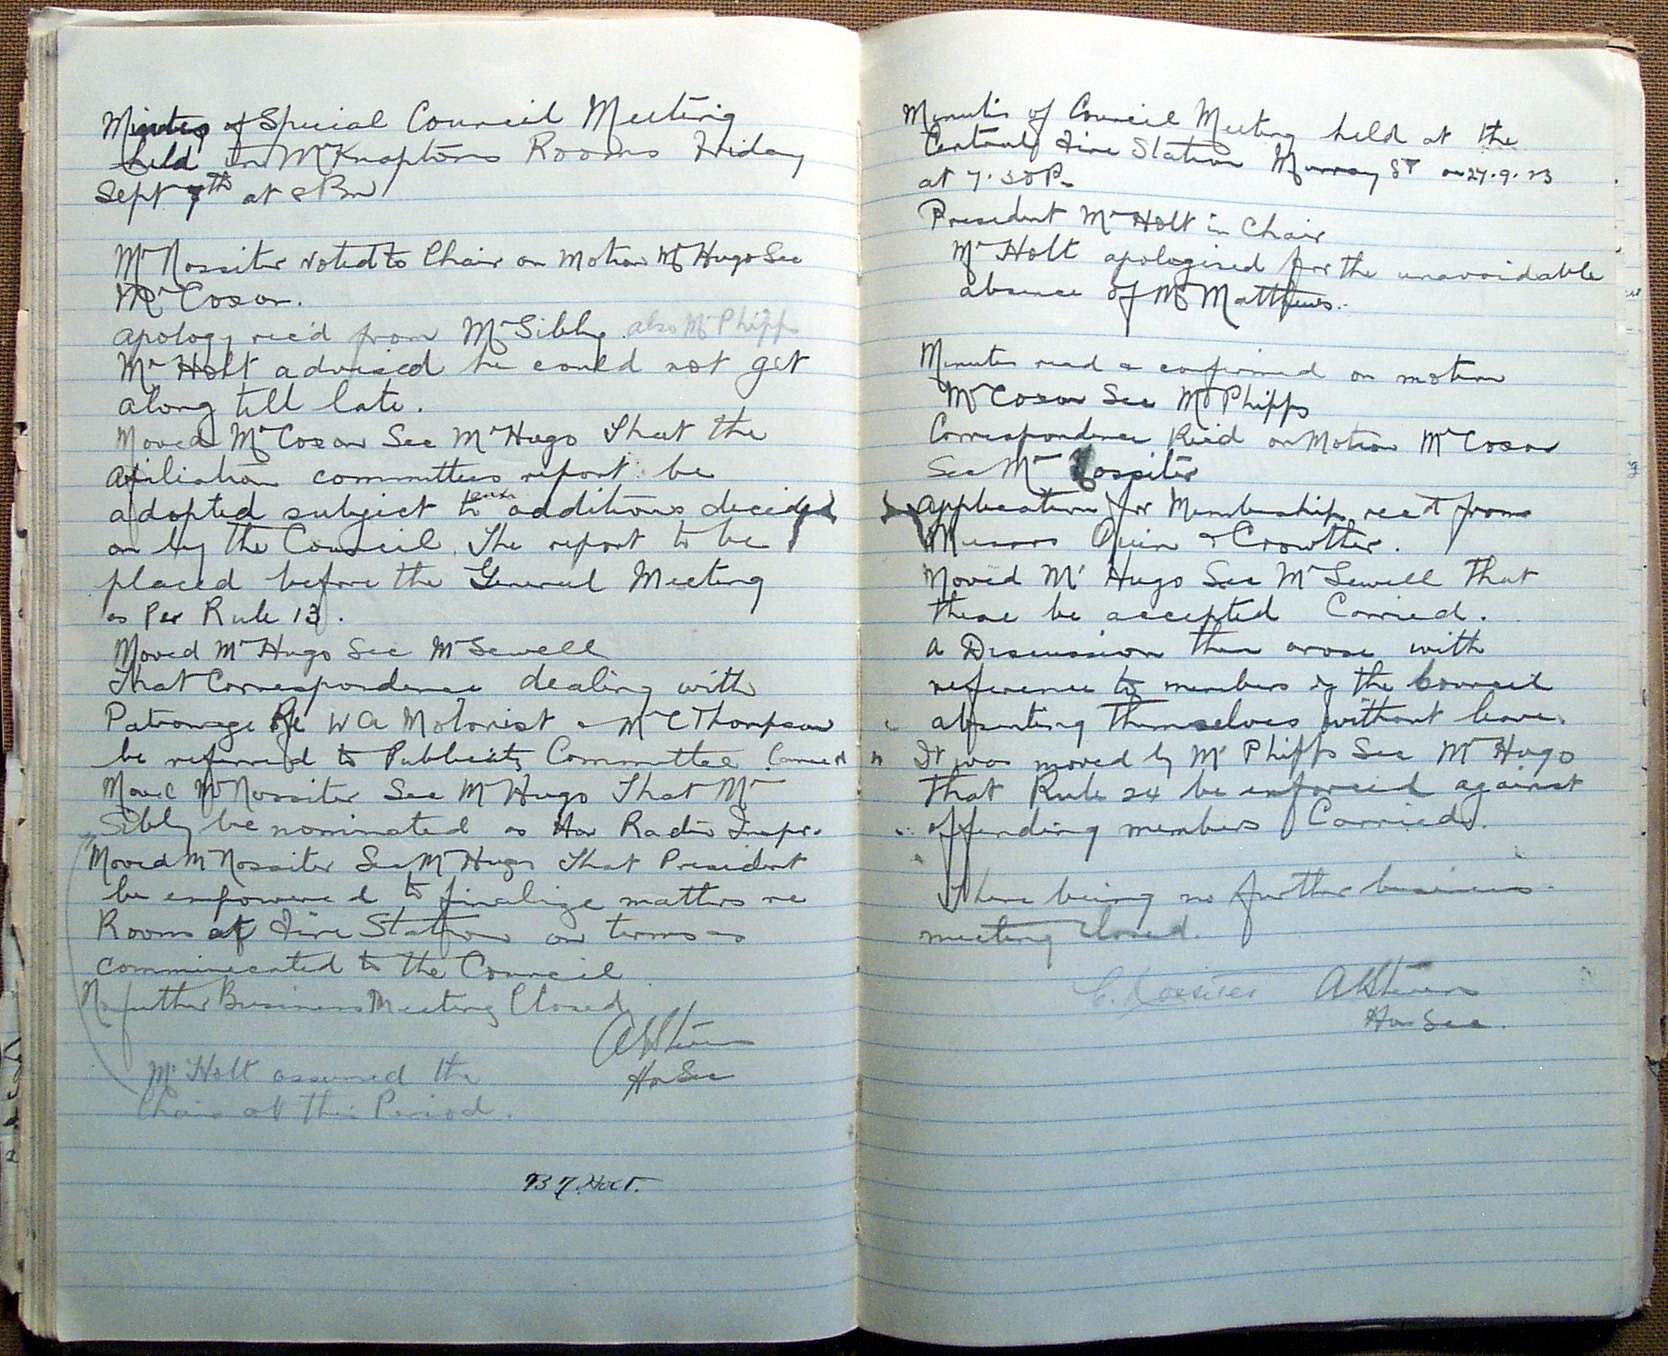 Minutes of Special Council Meeting
held in Mr Knaptons Rooms Friday
Sept 7th at 8 Pm
Mr Rossiter voted to Chair on Motion Mr Hugo Sec
Mr Coxon.
apology rec'd from Mr Sibly also Mr Phipps
Mr Holt advised he could not get
along till late.
Moved Mr Coxon Sec Mr Hugo That the
afiliation committees report be
adopted subject to additions decided
on by the Council. The report to be
placed before the General Meeting
as Per Rule 13.
Moved Mr Hugo Sec Mr Sewell
That Correspondence dealing with
Patronage Re W A Motorist & Mr C Thompson
be referred to Publicity Committee Carried
Moved Mr Rossiter Sec Mr Hugo That Mr
Sibly be nominated as Hon Radio Inspr.
Moved Mr Rossiter Sec Mr Hugo That President
be empowered to finalize matters re
Rooms at Fire Station on terms as
communicated to the Council
No further Business Meeting Closed
Hon Sec
Mr Holt assumed the
Chair at this Period.
Holt.
Minutes of Council Meeting held at the
Central Fire Station Murray St on 27.9.23
at 7.30 P.
President Mr Holt in Chair
Mr Holt apologised for the unavoidable
absence of Mr Matthews.
Minutes read & confirmed on motion
Mr Coxon Sec Mr Phipps
Correspondence Rec'd on Motion Mr Coxon
Sec Mr Rossiter
Application for Membership rec'd from
Messrs Quin & Crowther.
Moved Mr Hugo Sec Mr Sewell That
these be accepted Carried.
A Discussion then arose with
reference to members of the Council
absenting themselves without leave.
It was moved by Mr Phipps Sec Mr Hugo
That Rule 24 be enforced against
offending members Carried.
There being no further business
meeting closed.
C. Rossiter
Hon Sec.